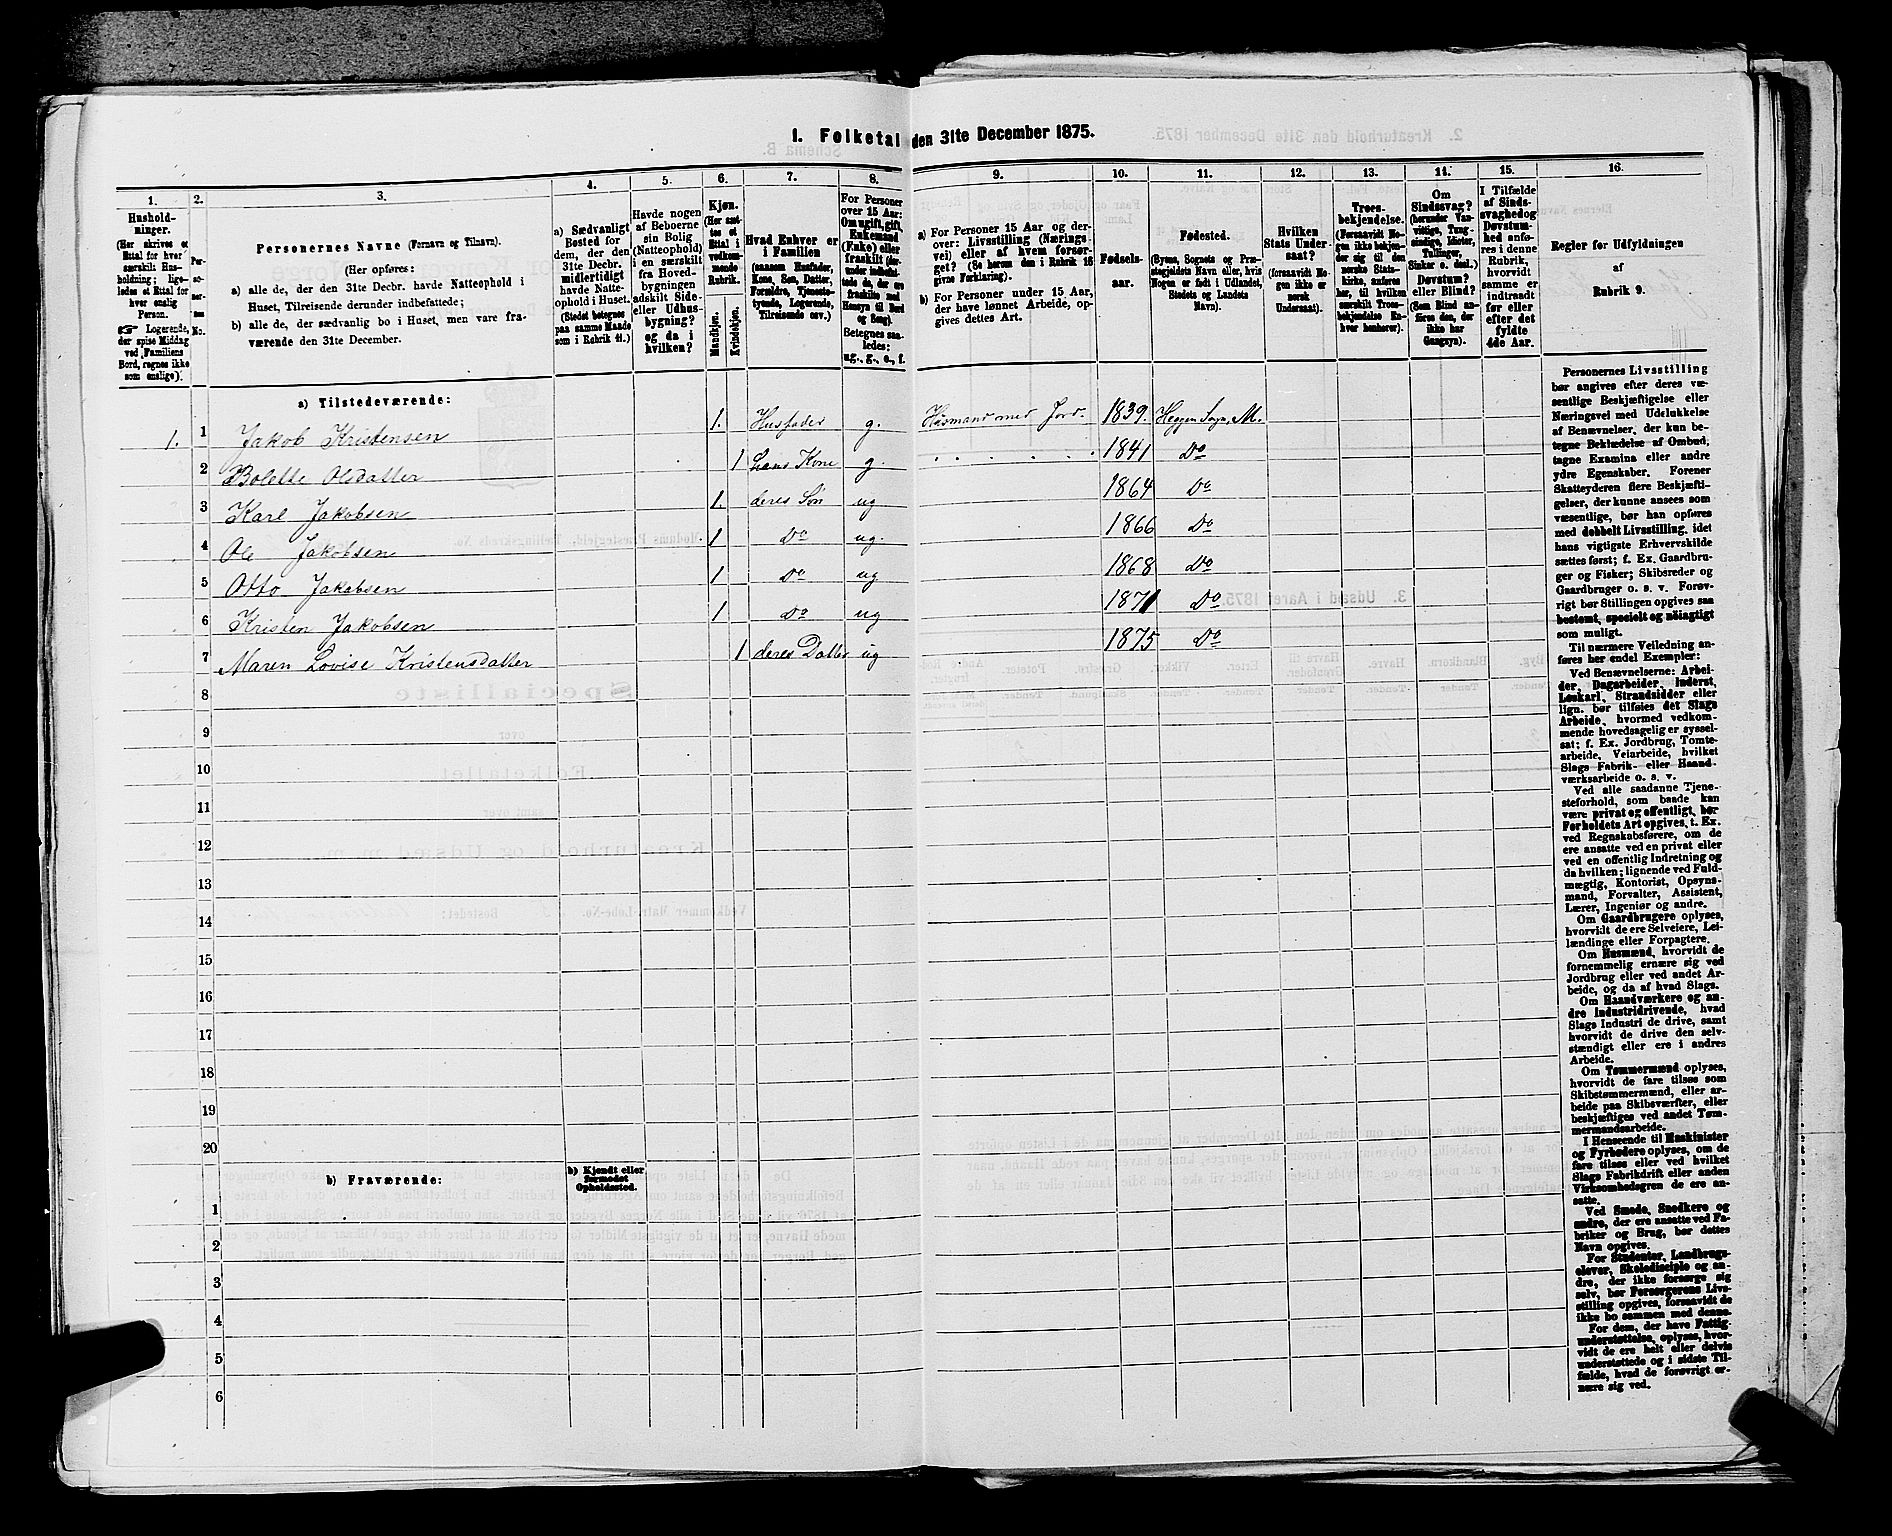 1. Folketal den 31te December 1875.
1. 2. 3. 4. 5. 6. 7. 8. 9. 10. 11. 12. 13. 14. 15. 16.
Hushold-
ninger.
(Her skrives et
Ettal for hver
særskilt Hus-
holdning; lige-
ledes et Ettal for
hver enslig
Person.
☞ Logerende,
der spise Middag
ved Familiens
Bord, regnes ikke
som enslige).
Per-
so-
ner-
nes
No.
Personernes Navne (Fornavn og Tilnavn).
(Her opføres:
a) alle de, der den 31te Decbr. havde Natteophold i
Huset, Tilreisende derunder indbefattede;
b) alle de, der sædvanlig bo i Huset, men vare fra-
værende den 31te December.
a) Sædvanligt
Bosted for
dem, der den
31te Decbr.
midlertidigt
havde Natte-
ophold i Huset.
(Stedet betegnes
paa samme Maade
som i Rubrik 11.)
Havde nogen
af Beboerne
sin Bolig
(Natteophold)
i en særskilt
fra Hoved-
bygningen
adskilt Side-
eller Udhus-
bygning?
og da i
hvilken?
Kjøn.
(Her sæt-
tes et
Ettal i
vedkom-
mende
Rubrik.
Mandkjøn.
Kvindekjøn.
Hvad Enhver er
i Familien
(saasom Husfader,
Kone, Søn, Datter,
Forældre, Tjeneste-
tyende, Logerende,
Tilreisende osv.)
For Personer
over 15 Aar:
Om ugift, gift,
Enkemand
(Enke) eller
fraskilt (der-
under indbefat-
tede de, der ere
fraskilte med
Hensyn til Bord
og Seng).
Betegnes saa-
ledes:
ug., g., e., f.
a) For Personer 15 Aar og der-
over: Livsstilling (Nærings-
vei) eller af hvem forsør-
get? (Se herom den i Rubrik 16
givne Forklaring).
b) For Personer under 15 Aar,
der have lønnet Arbeide, op-
gives dettes Art.
Fødsels-
aar.
Fødested.
(Byens, Sognets og Præ-
stegjeldets Navn eller, hvis
Nogen er født i Udlandet,
Stedets og Landets
Navn).
Hvilken
Stats Under-
saat?
(forsaavidt No-
gen ikke er
norsk
Undersaat).
Troes-
bekjendelse.
(Forsaavidt No-
gen ikke bekjen-
der sig til den
norske Stats-
kirke, anføres
her, til hvilken
særskilt Troes-
bekjendelse En-
hver henhører).
Om
Sindssvag?
(herunder Van-
vittige, Tung-
sindige, Idioter,
Tullinger,
Sinker o. desl.)
Døvstum?
eller Blind?
(Som Blind an-
føres den, der
ikke har
Gangsyn).
I Tilfælde
af Sinds-
svaghed og
Døvstum-
hed anfø-
res i denne
Rubrik,
hvorvidt
samme er
indtraadt
før eller
efter det
fyldte
4de Aar.
Regler for Udfyldningen
af
Rubrik 9.
a) Tilstedeværende:
1. 1 Jakob Kristensen 1. Husfader g. Husmand med Jord. 1839. Heggen Sogn, M.
2 Bolette Olsdatter 1 hans Kone g. 1841 Do
3 Karl Jakobsen 1. deres Søn ug 1864 Do
4 Ole Jakobsen 1 Do ug. 1866 Do
5 Otto Jakobsen 1 Do ug 1868 Do
6 Kristen Jakobsen 1 Do ug 1871 Do
7 Maren Lovise Kristensdatter 1 deres Datter ug 1875 Do
8
9
10
11
12
13
14
15
16
17
18
19
20
b) Fraværende:
b) Kjendt eller
formodet
Opholdssted.
1
2
3
4
5
6
Personernes Livsstilling
bør angives efter deres væ-
sentlige Beskjæftigelse eller
Næringsvei med Udelukkelse
af Benævnelser, der kun be-
tegne Beklædelse af Ombud,
tagne Examina eller andre
ydre Egenskaber. Forener
Skatteyderen flere Beskjæfti-
gelser, der kunne ansees som
væsentlige, bør han opføres
med dobbelt Livsstilling, idet
hans vigtigste Erhvervskilde
sættes først; f. Ex. Gaardbru-
ger og Fisker; Skibsreder og
Gaardbruger o. s. v. Forøv-
rigt bør Stillingen opgives saa
bestemt, specielt og nøiagtigt
som muligt.
Til nærmere Veiledning an-
føres her endel Exempler:
Ved Benævnelserne: Arbei-
der, Dagarbeider, Inderst,
Løskarl, Strandsidder eller
lign. bør tilføies det Slags
Arbeide, hvormed vedkom-
mende hovedsagelig er syssel-
sat; f. Ex. Jordbrug, Tomte-
arbeide, Veiarbeide, hvilket
Slags Fabrik- eller Haand-
værksarbeide o. s. v.
Ved alle saadanne Tjene-
steforhold, som baade kan
være privat og offentligt, bør
Forholdets Art opgives, t. Ex.
ved Regnskabsførere, om de
ere ansatte ved en privat eller
ved en offentlig Indretning og
da hvilken; lignende ved Fuld-
mægtig, Kontorist, Opsyns-
mand, Forvalter, Assistent,
Lærer, Ingeniør og andre.
Om Gaardbrugere oplyses,
hvorvidt de ere Selveiere, Lei-
lændinge eller Forpagtere.
Om Husmænd, hvorvidt de
fornemmelig ernære sig ved
Jordbrug eller ved andet Ar-
beide, og da af hvad Slags.
Om Haandværkere og an-
dre Industridrivende, hvad
Slags Industri de drive, samt
hvorvidt de drive den selv-
stændigt eller ere i andres
Arbeide.
Om Tømmermænd oplyses,
hvorvidt de fare tilsøs som
Skibstømmermænd, eller ar-
beide paa Skibsværfter, eller
beskjæftiges ved andet Tøm-
mermandsarbeide.
I Henseende til Maskinister
og Fyrbødere oplyses, om de
fare tilsøs eller ved hvilket
Slags Fabrikdrift eller anden
Virksomhedsgren de ere an-
satte.
Ved Smede, Snedkere og
andre, der ere ansatte ved Fa-
briker og Brug, bør dettes
Navn opgives.
For Studenter, Landbrugs-
elever, Skoledisciple og an-
dre, der ikke forsørge sig
selv, bør Forsørgerens Livs-
stilling opgives, forsaavidt de
ikke bo sammen med denne.
For dem, der have Fattig-
understøttelse, oplyses, hvor-
vidt de ere helt eller delvis
understøttede og i sidste Til-
fælde, hvad de forøvrigt er-
nære sig ved.